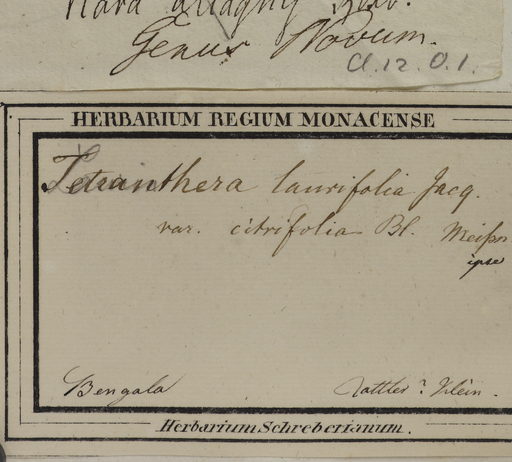 Genus Novum.
Cl. 12. O. 1.
HERBARIUM REGIUM MONACENSE
Tetranthera laurifolia Jacq.
var. citrifolia Bl. Meißn
ipse
Bengala
Rottler? Klein.
Herbarium Schreberianum.